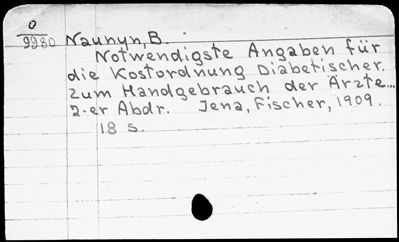 0
9980 Naunyn, B.
Notwendigste Angaben für
die Kostordnung Diabetischer.
Zum Handgebrauch der Ärzte...
2-er Abdr. Jena, Fischer, 1909.
18 s.